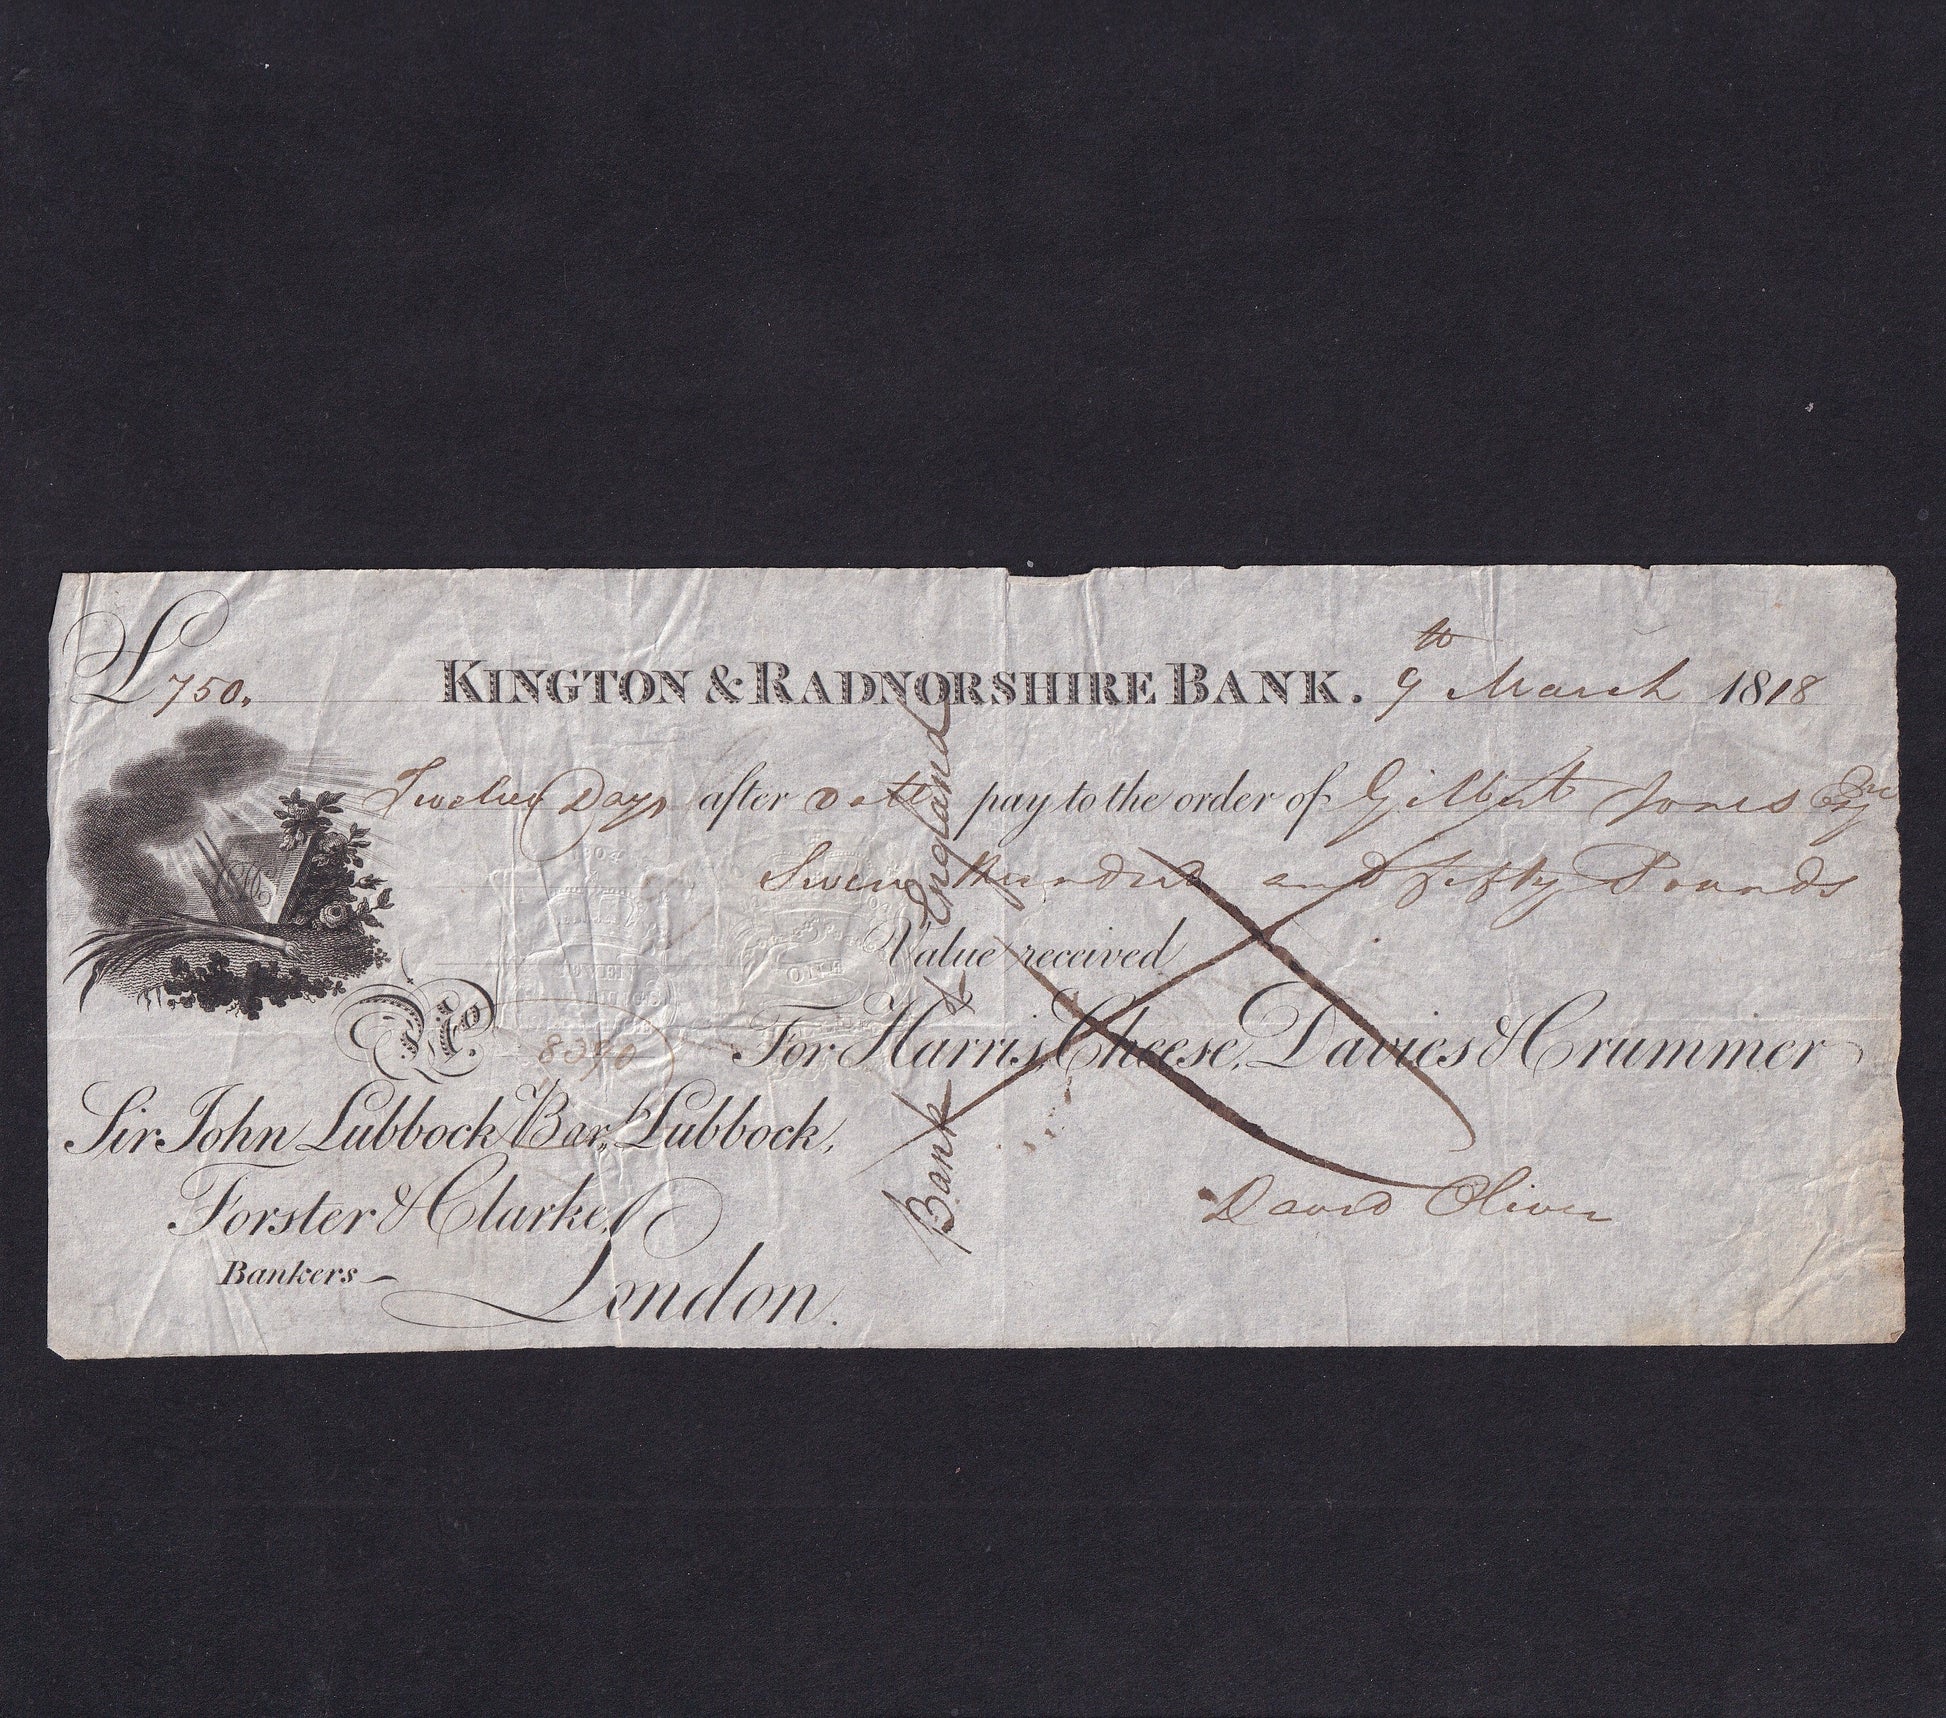 £750. KINGTON & RADNORSHIRE BANK. 9th March 1818
Twelve Days after date pay to the order of Gilbert Jones Esqre
Seven Hundred and fifty Pounds
Value received
For Harris, Cheese, Davies & Crummer
No. 8390
Sir John Lubbock Bart. Lubbock,
Forster & Clarke,
Bankers
London.
David Oliver
Bank of England